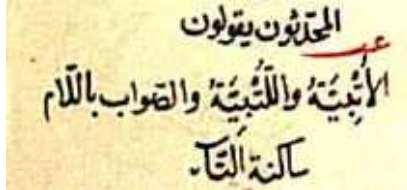 المحدّثون يقولون
الأُتْبِيَّةُ واللُّتْبِيَّةُ والصّواب باللّام
ساكنة التّاء